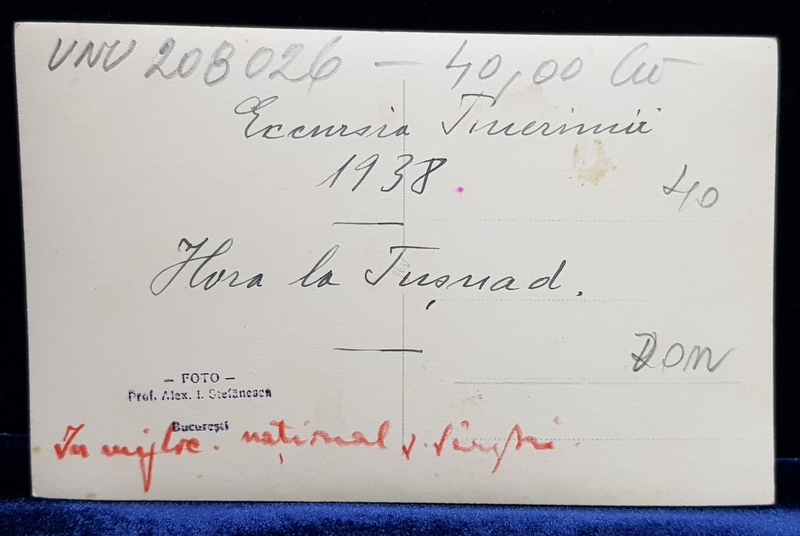 VNV 208026 — 40,00
Excursia Tinerimii
1938.
40
Hora la Tușnad.
RON
— FOTO —
Prof. Alex. I. Stefănescu
București
In mijloc. național